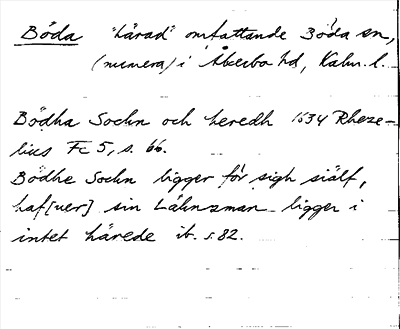 Böda "härad" omfattande Böda sn,
(numera) i Åkerbo hd, Kalm. l.
Bödha Sochn och heredh 1634 Rheze-
lius Fc 5, s. 66.
Bödhe Sochn ligger för sigh siälf,
haf[uer] sin Lähnzman ligger i
intet härede ib. s. 82.